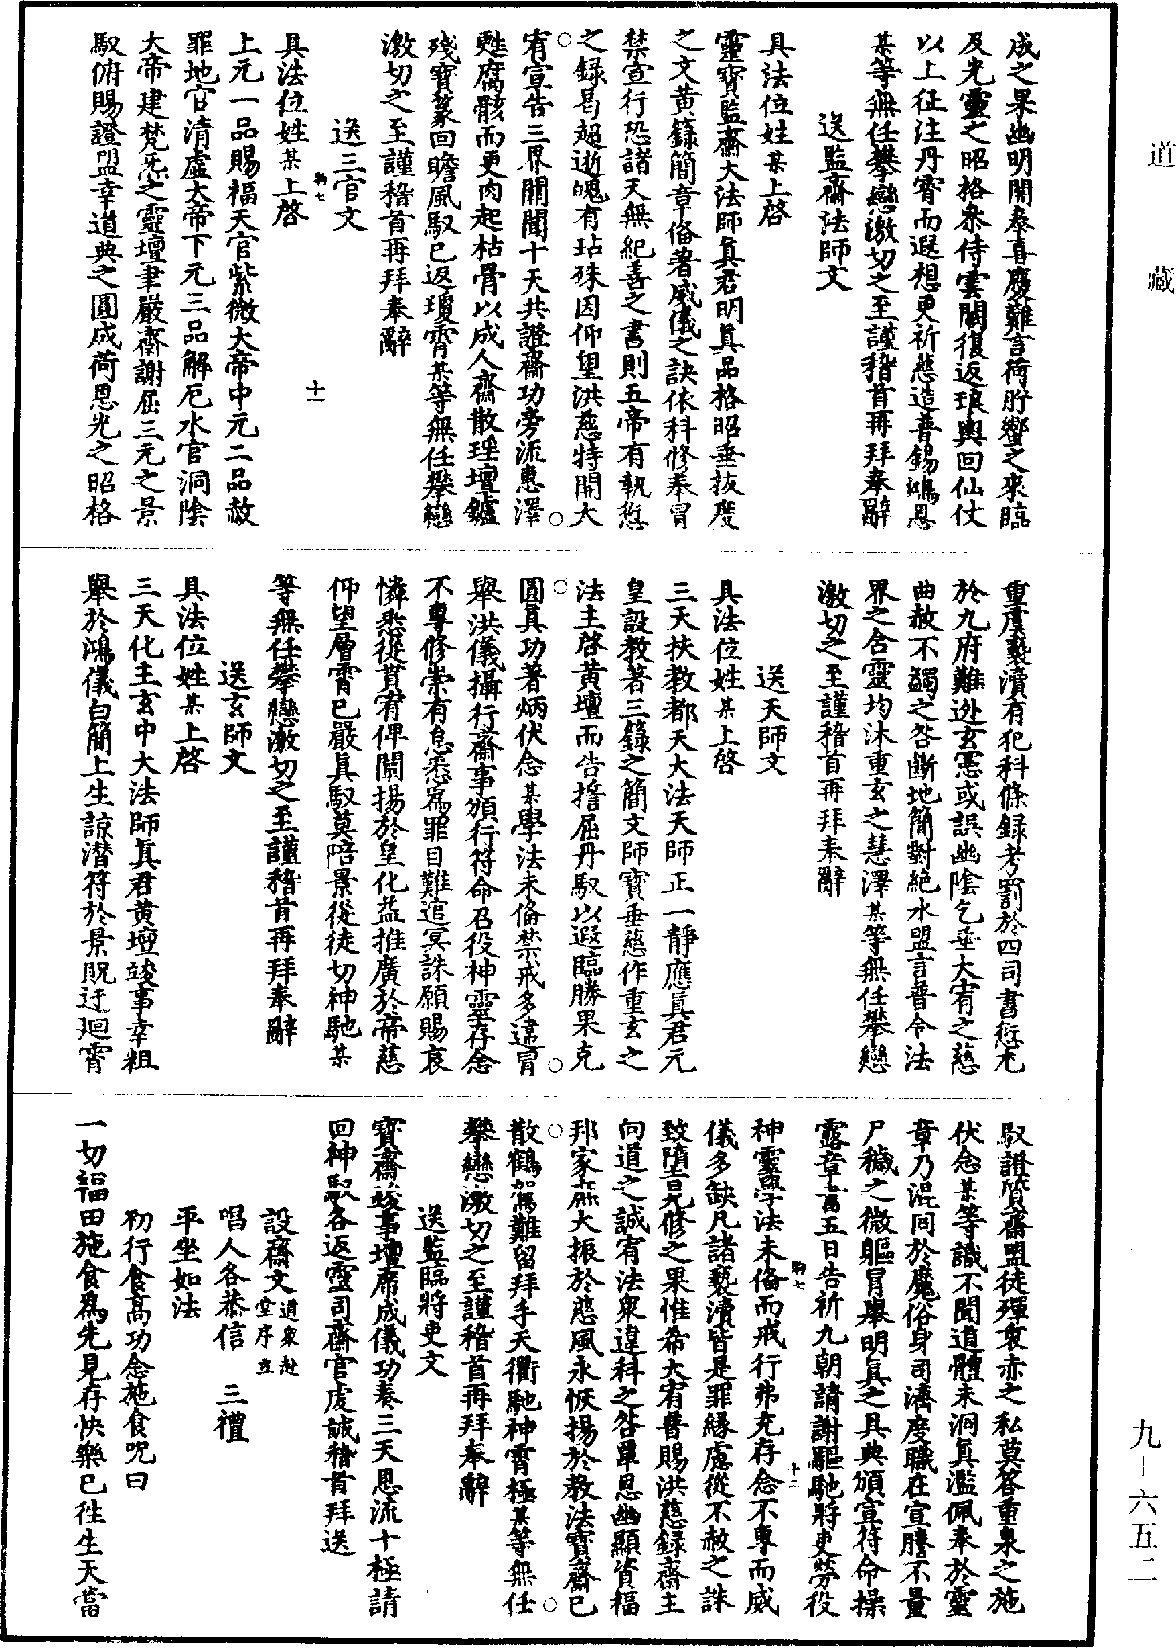 道藏
成之果幽明開泰喜慶難言荷肸蠁之來臨
及光靈之昭格叅侍雲闕復返琅輿回仙仗
以上征注丹霄而遐想更祈慈造普錫鴻恩
某等無任攀戀激切之至謹稽首再拜奉辭
送監齋法師文
具法位姓某上啓
靈寶監齋大法師真君明真品格昭垂拔度
之文黃籙簡章俻著威儀之訣依科修奉冒
禁宣行恐諸天無紀善之書則五帝有執愆
之錄曷超逝魄有玷殊因仰望洪慈特開大
宥宣告三界關聞十天共證齋功旁流惠澤
甦腐骸而更肉起枯骨以成人齋散瑤壇鑪
殘寶篆回瞻風馭已返瓊霄某等無任攀戀
激切之至謹稽首再拜奉辭
送三官文
十一
具法位姓某上啓
上元一品賜福天官紫微大帝中元二品赦
罪地官清虛大帝下元三品解厄水官洞陰
大帝建梵炁之靈壇聿嚴齋謝屈三元之景
馭俯賜證盟幸道典之圓成荷恩光之昭格
重虞褻瀆有犯科條錄考罰於四司書愆尤
於九府難逃玄憲或誤幽陰乞垂大宥之慈
曲赦不蠲之咎斷地簡對絕水盟言普令法
界之含靈均沐重玄之慧澤某等無任攀戀
激切之至謹稽首再拜奉辭
送天師文
具法位姓某上啓
三天扶教都天大法天師正一靜應真君元
皇設教著三錄之簡文師寶垂慈作重玄之
法主啓黃壇而告㨗屈丹馭以遐臨勝果克
圓真功著炳伏念某學法未俻禁戒多違冒
舉洪儀攝行齋事頒行符命召役神靈存念
不專修崇有怠悉爲罪目難逭冥誅願賜哀
憐㳟從貰宥俾闡揚於皇化益推廣於帝慈
仰望層霄已嚴真馭莫陪景從徒切神馳某
等無任攀戀激切之至謹稽首再拜奉辭
送玄師文
具法位姓某上啓
三天化主玄中大法師真君黃壇竣事幸粗
舉於鴻儀白簡上生諒潛符於景貺迂廻霄
馭證質齋盟徒殫衷赤之私莫答重臬之施
伏念某等識不聞道體未洞真濫佩奉於靈
章乃混同於魔俗身司濟度職在宣謄不量
尸穢之微軀冒舉明真之具典頒宣符命操
露章書五日告祈九朝請謝驅馳將吏勞役
神靈學法未俻而戒行弗充存念不專而威
儀多缺凡諸褻瀆皆是罪緣慮從不赦之誅
致墮已修之果惟希大宥普賜洪慈錄齋主
向道之誠宥法衆違科之咎覃恩幽顯資福
邦家庶大振於慈風永恢揚於教法寶齋已
散鶴駕難留拜手天衢馳神霄極某等無任
攀戀激切之至謹稽首再拜奉辭
送監臨將吏文
寶齋竣事壇席成儀功奏三天恩流十極請
回神馭各返靈司齋官虔誠稽首拜送
設齋文道衆赴堂序立
唱人各恭信　三禮
平坐如法
初行食高功念施食呪曰
一切福田施食爲先見存快樂已徃生天當
九-六五二